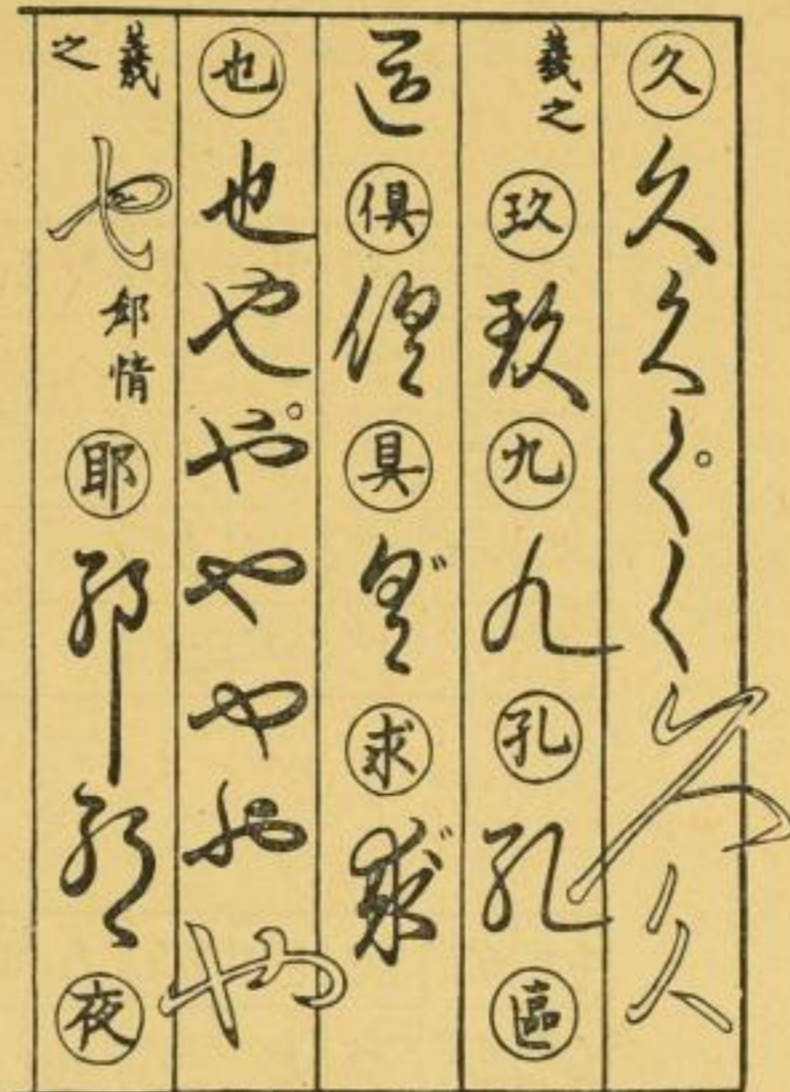 久久久くく久久
羲之玖玖九九孔孔區
區俱俱具具求求
也也やややややや
羲之也耶耶耶夜